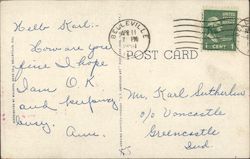 Hello Karl:-
How are you
since I hope
I am O.K.
and keeping
busy.
Ann.
BELLEVILLE
APR 11
1 CENT 1
POST CARD
Mr. Karl Sutherlin
c/o Voncastle
Greencastle
Ind.